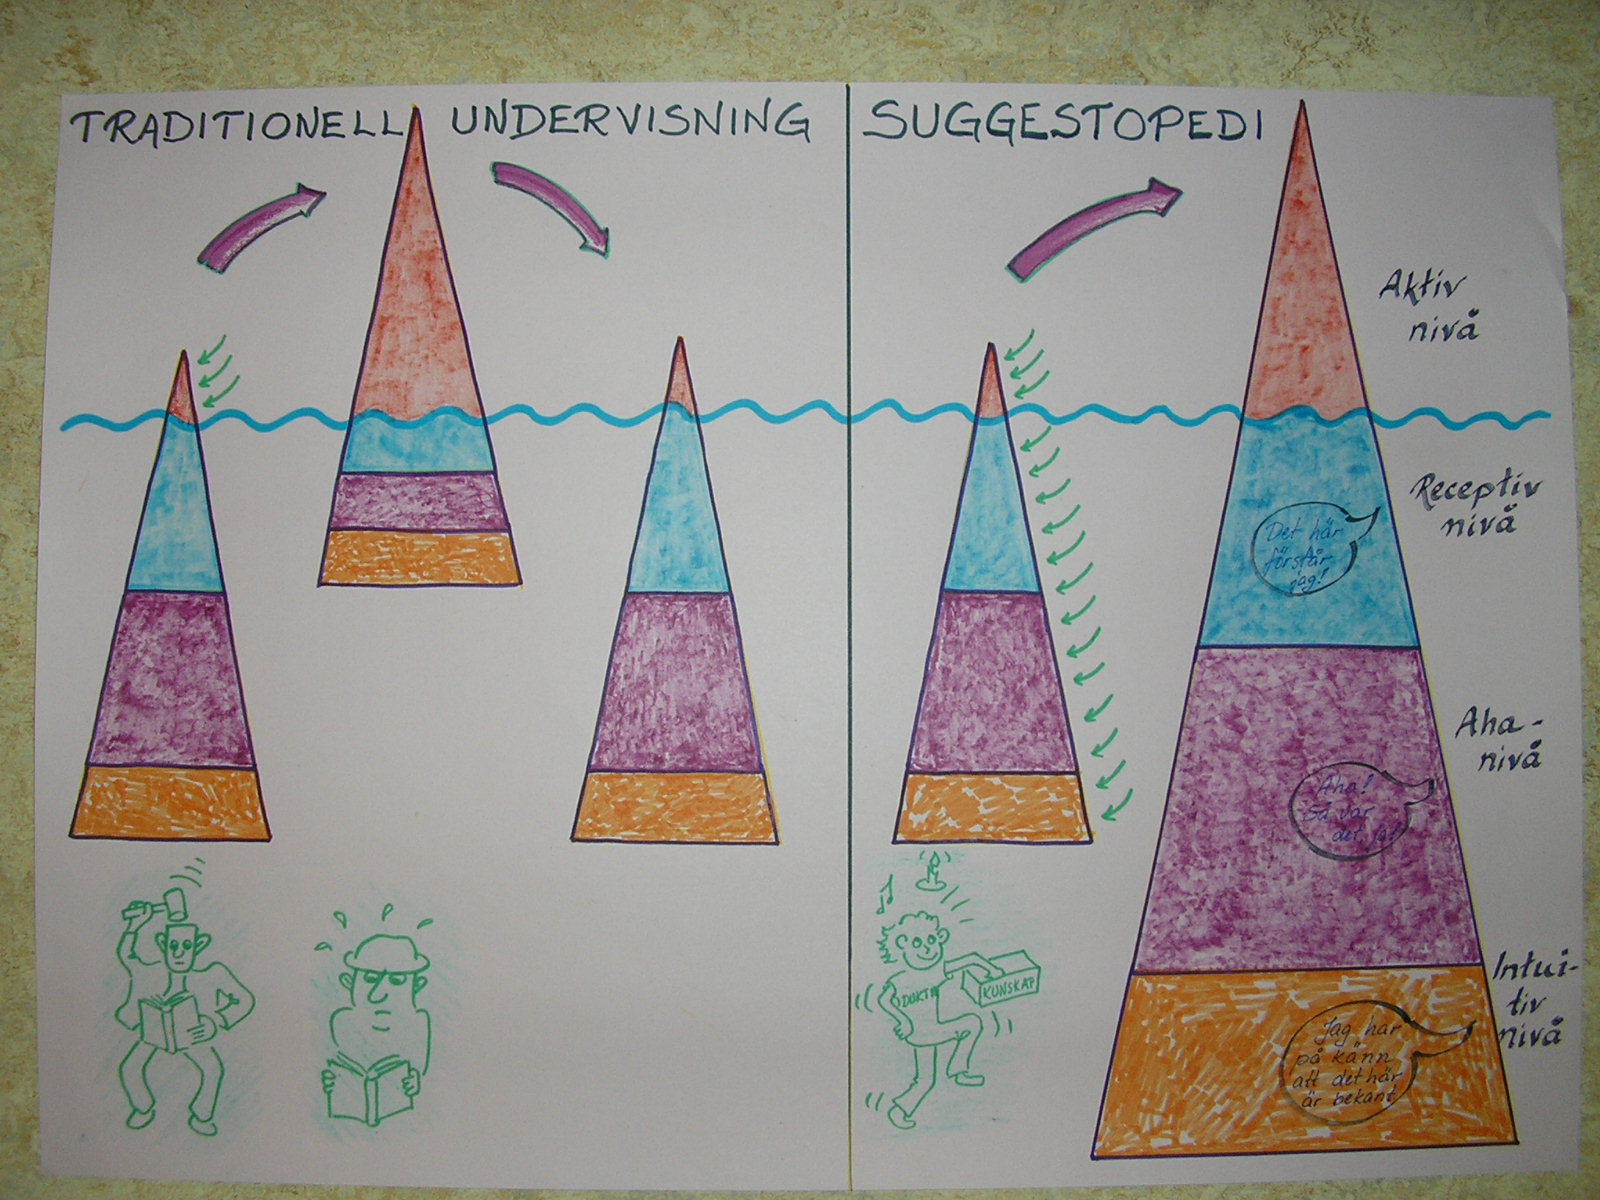 TRADITIONELL UNDERVISNING
SUGGESTOPEDI
Aktiv
nivå
Receptiv
nivå
Det här
förstår
jag!
Aha-
nivå
Aha!
Så var
det ja!
Intui-
tiv
nivå
Jag har
på känn
att det här
är bekant
KUNSKAP